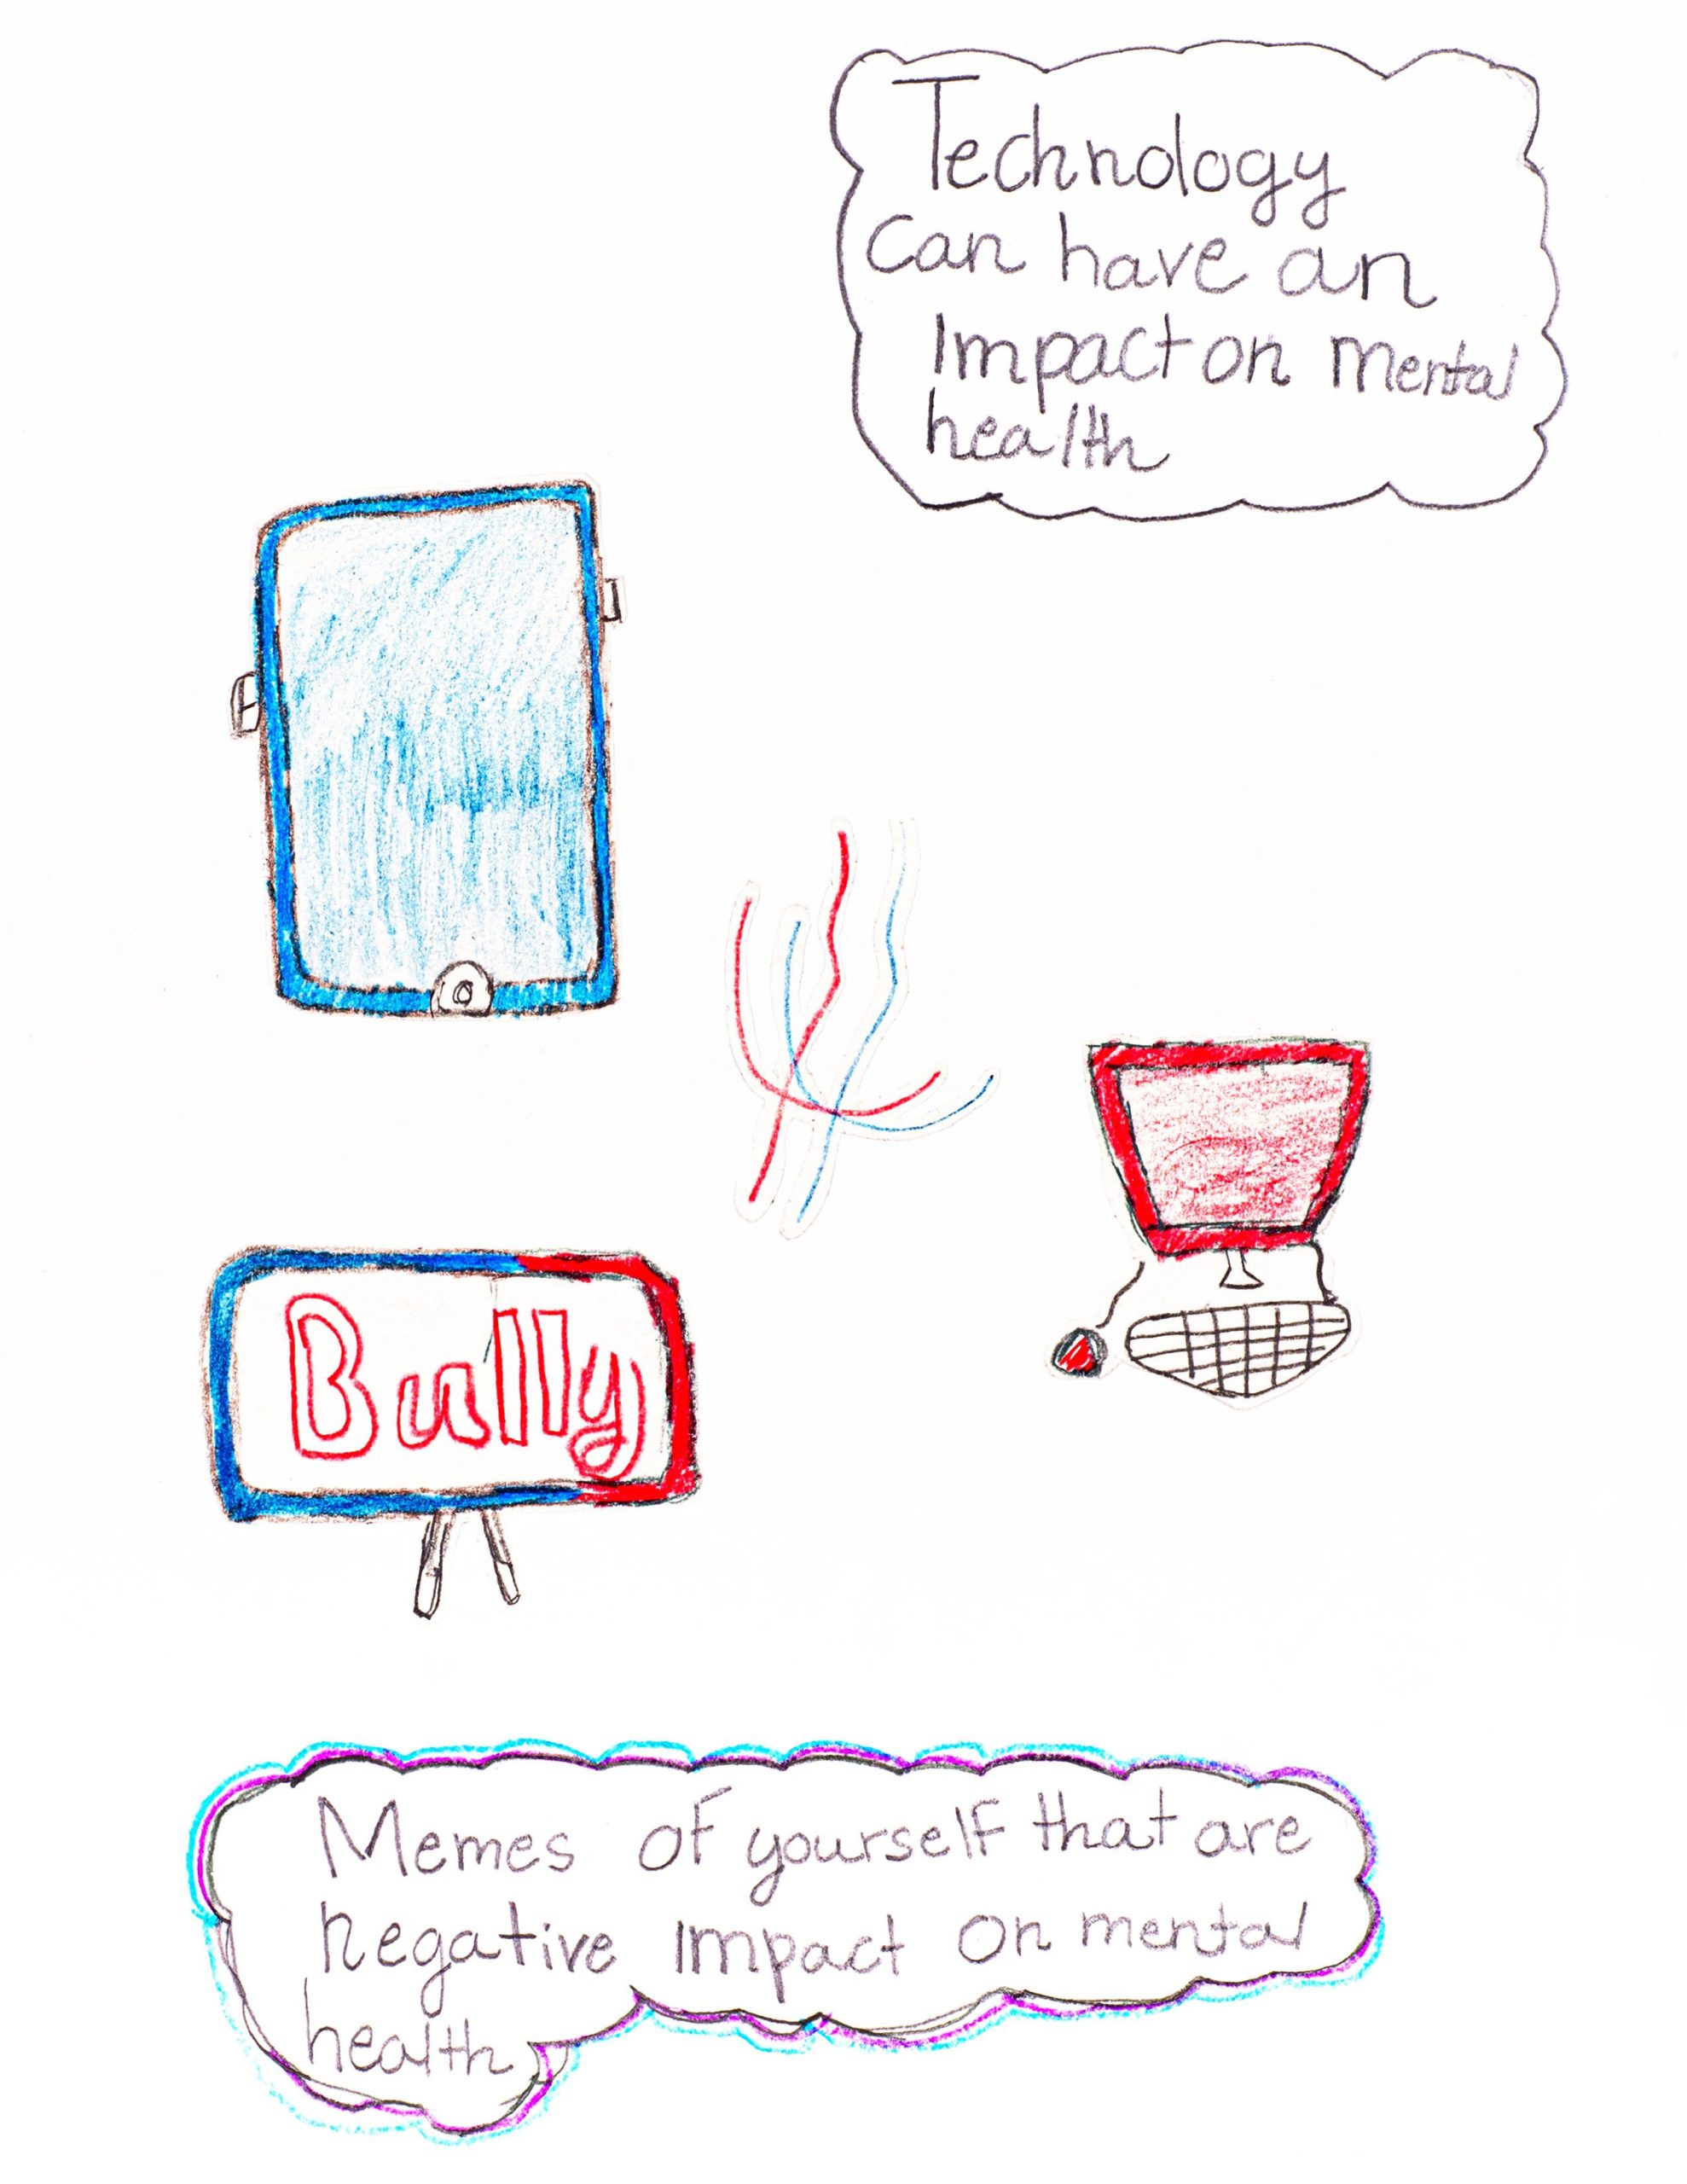 Technology
can have an
Impact on mental
health
Bully
Memes of yourself that are
negative impact on mental
health